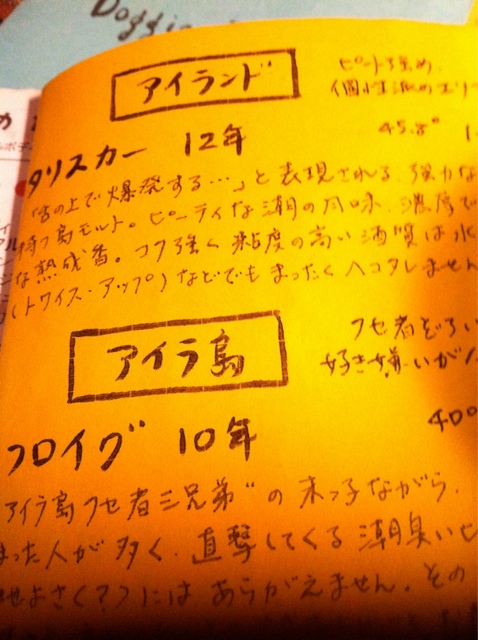 Doggie
アイランド
ピート強め、
個性派のエリ
タリスカー 12年
45.8°
「舌の上で爆発する…」と表現される、強力な
持つ島モルト。ピーティな潮の風味、濃厚で
な熟成香。コク強く粘度の高い酒質は水
(トワイス・アップ)などでもまったくヘコタレません
アイラ島
クセ者ぞろい
好き嫌いが
フロイグ 10年
40°
アイラ島クセ者三兄弟"の末っ子ながら、
まった人が多く、直撃してくる潮臭いピ
地よさく(?)にはあらがえません。その